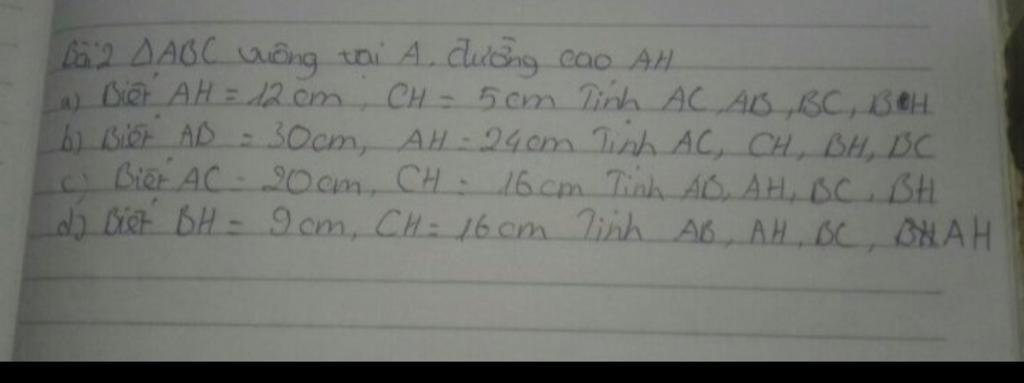 Bài 2 ΔABC vuông tại A. đường cao AH
a) Biết AH = 12cm, CH = 5cm Tính AC, AB, BC, BH
b) Biết AB = 30cm, AH = 24cm Tính AC, CH, BH, BC
c) Biết AC = 20cm, CH = 16cm Tính AB, AH, BC, BH
d) Biết BH = 9cm, CH = 16cm Tính AB, AH, BC, AH